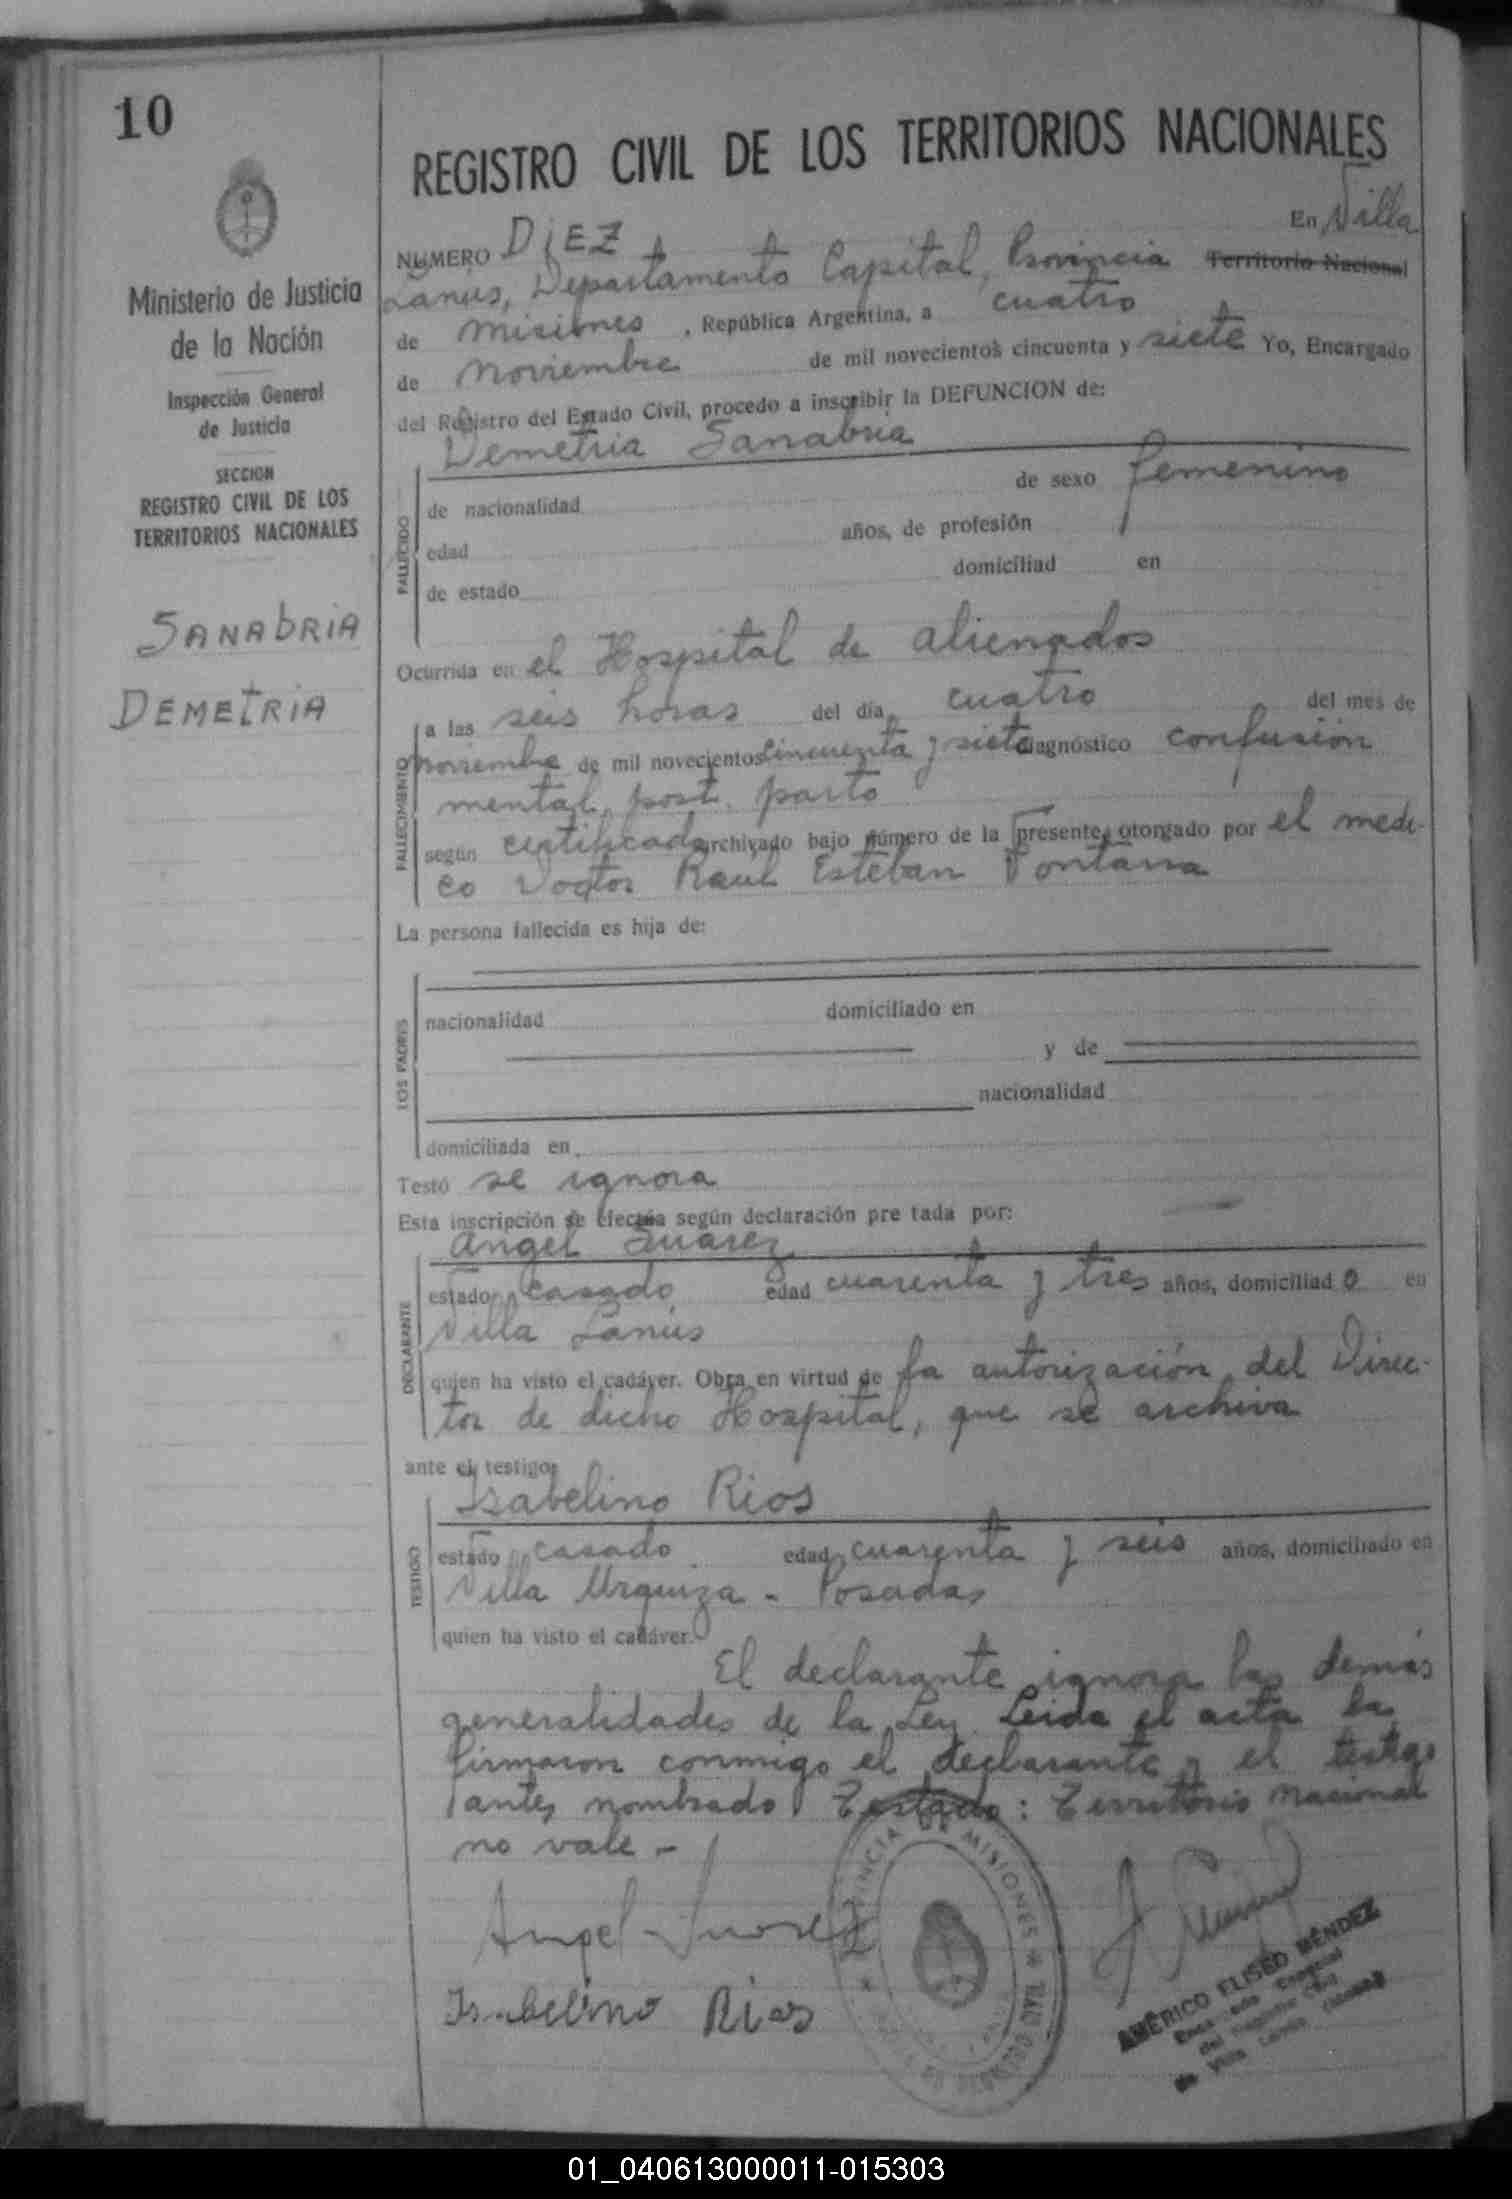 10
REGISTRO CIVIL DE LOS TERRITORIOS NACIONALES
Ministerio de Justicia
de la Nación
Inspección General
de Justicia
SECCION
REGISTRO CIVIL DE LOS
TERRITORIOS NACIONALES
SANAbRiA
DEMEtRiA
NUMERO DiEZ En Villa
Lanús, Departamento Capital, Provincia Territorio Nacional
de Misiones , República Argentina, a cuatro
de Noviembre de mil novecientos cincuenta y siete Yo, Encargado
del Registro del Estado Civil, procedo a inscribir la DEFUNCION de:
Demetria Sanabria
FALLECIDO
de nacionalidad de sexo femenino
edad años, de profesión
de estado domiciliad en
Ocurrida en el Hospital de alienados
FALLECIMIENTO
a las seis horas del día cuatro del mes de
noviembre de mil novecientos cincuenta y siete diagnóstico confusión
mental, post. parto
según certificado archivado bajo número de la presente, otorgado por el medi-
co Doctor Raúl Esteban Fontana
La persona fallecida es hija de:
LOS PADRES
nacionalidad domiciliado en
y de
nacionalidad
domiciliada en
Testó se ignora
Esta inscripción se efectúa según declaración pre tada por:
Angel Suarez
DECLARANTE
estado casado edad cuarenta y tres años, domiciliad o en
Villa Lanús
quien ha visto el cadáver. Obra en virtud de la autorización del Direc-
tor de dicho Hospital, que se archiva
ante el testigo:
Isabelino Rios
TESTIGO
estado casado edad cuarenta y seis años, domiciliado en
Villa Urquiza - Posadas
quien ha visto el cadáver.
El declarante ignora las demás
generalidades de la Ley. Leida el acta la
firmaron conmigo el declarante y el testigo
antes nombrado Testado: Territorio Nacional
no vale -
Angel Suarez
Isabelino Rios
PROVINCIA DE MISIONES
AMÉRICO ELISEO MÉNDEZ
del Registro Civil
de Villa Lanús
01_040613000011-015303